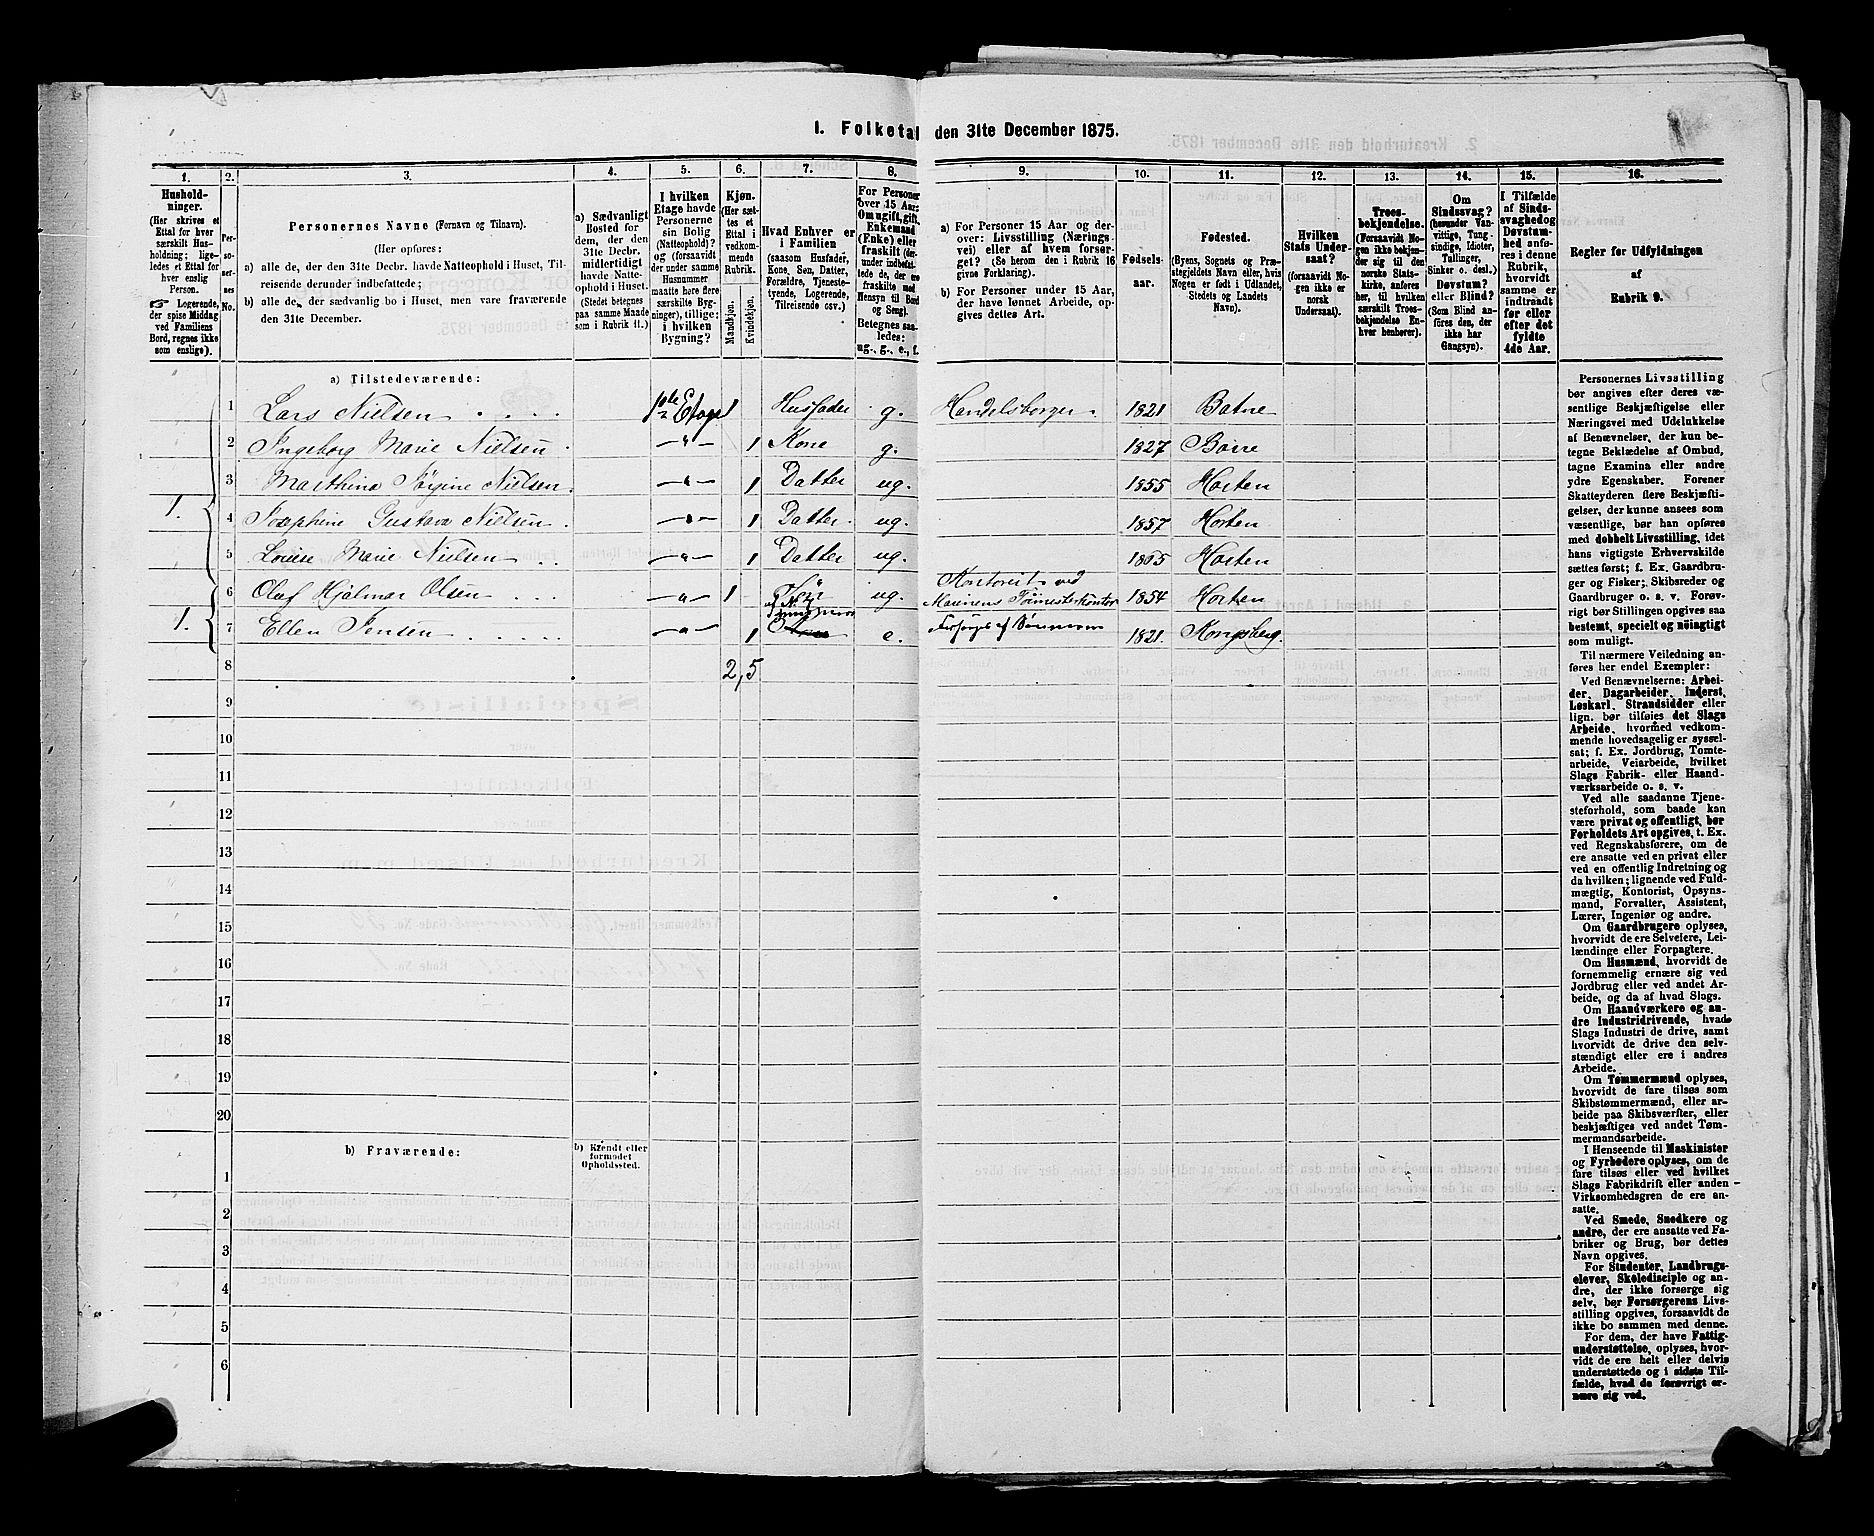 I. Folketal den 31te December 1875.
1. 2. 3. 4. 5. 6. 7. 8. 9. 10. 11. 12. 13. 14. 15. 16.
Hushold-
ninger.
(Her skrives et
Ettal for hver
særskilt Hus-
holdning; lige-
ledes et Ettal for
hver enslig
Person.
☞ Logerende,
der spise Middag
ved Familiens
Bord, regnes ikke
som enslige).
Per-
so-
ner-
nes
No.
Personernes Navne (Fornavn og Tilnavn).
(Her opføres:
a) alle de, der den 31te Decbr. havde Natteophold i Huset, Til-
reisende derunder indbefattede;
b) alle de, der sædvanlig bo i Huset, men vare fraværende
den 31te December.
a) Sædvanligt
Bosted for
dem, der den
31te Decbr.
midlertidigt
havde Natte-
ophold i Huset.
(Stedet betegnes
paa samme Maade
som i Rubrik 11.)
I hvilken
Etage havde
Personerne
sin Bolig
(Natteophold)?
og (forsaavidt
der under samme
Husnummer
maatte høre flere
særskilte Byg-
ninger), tillige:
i hvilken
Bygning?
Kjøn.
(Her sæt-
tes et
Ettal i
vedkom-
mende
Rubrik.
Mandkjøn.
Kvindekjøn.
Hvad Enhver er
i Familien
(saasom Husfader,
Kone, Søn, Datter,
Forældre, Tjeneste-
tyende, Logerende,
Tilreisende osv.)
For Personer
over 15 Aar:
Om ugift, gift,
Enkemand
(Enke) eller
fraskilt (der-
under indbefat-
tede de, der ere
fraskilte med
Hensyn til Bord
og Seng).
Betegnes saa-
ledes:
ug., g., e., f.
a) For Personer 15 Aar og der-
over: Livsstilling (Nærings-
vei) eller af hvem forsør-
get? (Se herom den i Rubrik 16
givne Forklaring).
b) For Personer under 15 Aar,
der have lønnet Arbeide, op-
gives dettes Art.
Fødsels-
aar.
Fødested.
(Byens, Sognets og Præ-
stegjeldets Navn eller, hvis
Nogen er født i Udlandet,
Stedets og Landets
Navn).
Hvilken
Stats Under-
saat?
(forsaavidt No-
gen ikke er
norsk
Undersaat).
Troes-
bekjendelse.
(Forsaavidt No-
gen ikke bekjen-
der sig til den
norske Stats-
kirke, anføres
her, til hvilken
særskilt Troes-
bekjendelse En-
hver henhører).
Om
Sindssvag?
(herunder Van-
vittige, Tung-
sindige, Idioter,
Tullinger,
Sinker o. desl.)
Døvstum?
eller Blind?
(Som Blind an-
føres den, der
ikke har
Gangsyn).
I Tilfælde
af Sinds-
svaghed og
Døvstum-
hed anfø-
res i denne
Rubrik,
hvorvidt
samme er
indtraadt
før eller
efter det
fyldte
4de Aar.
Regler for Udfyldningen
af
Rubrik 9.
a) Tilstedeværende:
1 Lars Nielsen 1ste Etage 1 Husfader g. Handelsborger. 1821 Botne
2 Ingeborg Marie Nielsen — " — 1 Kone g. 1827 Borre
3 Marthine Jørgine Nielsen. — " — 1 Datter ug. 1855 Horten
1. 4 Josephine Gustava Nielsen — " — 1 Datter. ug. 1857 Horten
5 Louise Marie Nielsen — " — 1 Datter ug. 1865 Horten
6 Olaf Hjalmar Olsen — " — 1 Søn ug. Kontorist ved Marinens 1854 Horten
1. 7 Ellen Jensen — " — 1 e. Forsørges af 1821. Kongsberg.
8 2, 5
9
10
11
12
13
14
15
16
17
18
19
20
b) Fraværende:
b) Kjendt eller
formodet
Opholdssted.
1
2
3
4
5
6
Personernes Livsstilling
bør angives efter deres væ-
sentlige Beskjæftigelse eller
Næringsvei med Udelukkelse
af Benævnelser, der kun be-
tegne Beklædelse af Ombud,
tagne Examina eller andre
ydre Egenskaber. Forener
Skatteyderen flere Beskjæfti-
gelser, der kunne ansees som
væsentlige, bør han opføres
med dobbelt Livsstilling, idet
hans vigtigste Erhvervskilde
sættes først; f. Ex. Gaardbru-
ger og Fisker; Skibsreder og
Gaardbruger o. s. v. Forøv-
rigt bør Stillingen opgives saa
bestemt, specielt og nöiagtigt
som muligt.
Til nærmere Veiledning an-
føres her endel Exempler:
Ved Benævnelserne: Arbei-
der, Dagarbeider, Inderst,
Løskarl, Strandsidder eller
lign. bør tilføies det Slags
Arbeide, hvormed vedkom-
mende hovedsagelig er syssel-
sat; f. Ex. Jordbrug, Tomte-
arbeide, Veiarbeide, hvilket
Slags Fabrik- eller Haand-
værksarbeide o. s. v.
Ved alle saadanne Tjene-
steforhold, som baade kan
være privat og offentligt, bør
Forholdets Art opgives, t. Ex.
ved Regnskabsførere, om de
ere ansatte ved en privat eller
ved en offentlig Indretning og
da hvilken; lignende ved Fuld-
mægtig, Kontorist, Opsyns-
mand, Forvalter, Assistent,
Lærer, Ingeniør og andre.
Om Gaardbrugere oplyses,
hvorvidt de ere Selveiere, Lei-
lændinge eller Forpagtere.
Om Husmænd, hvorvidt de
fornemmelig ernære sig ved
Jordbrug eller ved andet Ar-
beide, og da af hvad Slags.
Om Haandværkere og an-
dre Industridrivende, hvad
Slags Industri de drive, samt
hvorvidt de drive den selv-
stændigt eller ere i andres
Arbeide.
Om Tømmermænd oplyses,
hvorvidt de fare tilsøs som
Skibstømmermænd, eller ar-
beide paa Skibsværfter, eller
beskjæftiges ved andet Tøm-
mermandsarbeide.
I Henseende til Maskinister
og Fyrbødere oplyses, om de
fare tilsøs eller ved hvilket
Slags Fabrikdrift eller anden
Virksomhedsgren de ere an-
satte.
Ved Smede, Snedkere og
andre, der ere ansatte ved Fa-
briker og Brug, bør dettes
Navn opgives.
For Studenter, Landbrugs-
elever, Skoledisciple og an-
dre, der ikke forsørge sig
selv, bør Forsørgerens Livs-
stilling opgives, forsaavidt de
ikke bo sammen med denne.
For dem, der have Fattig-
understøttelse, oplyses, hvor-
vidt de ere helt eller delvis
understøttede og i sidste Til-
fælde, hvad de forøvrigt er-
nære sig ved.